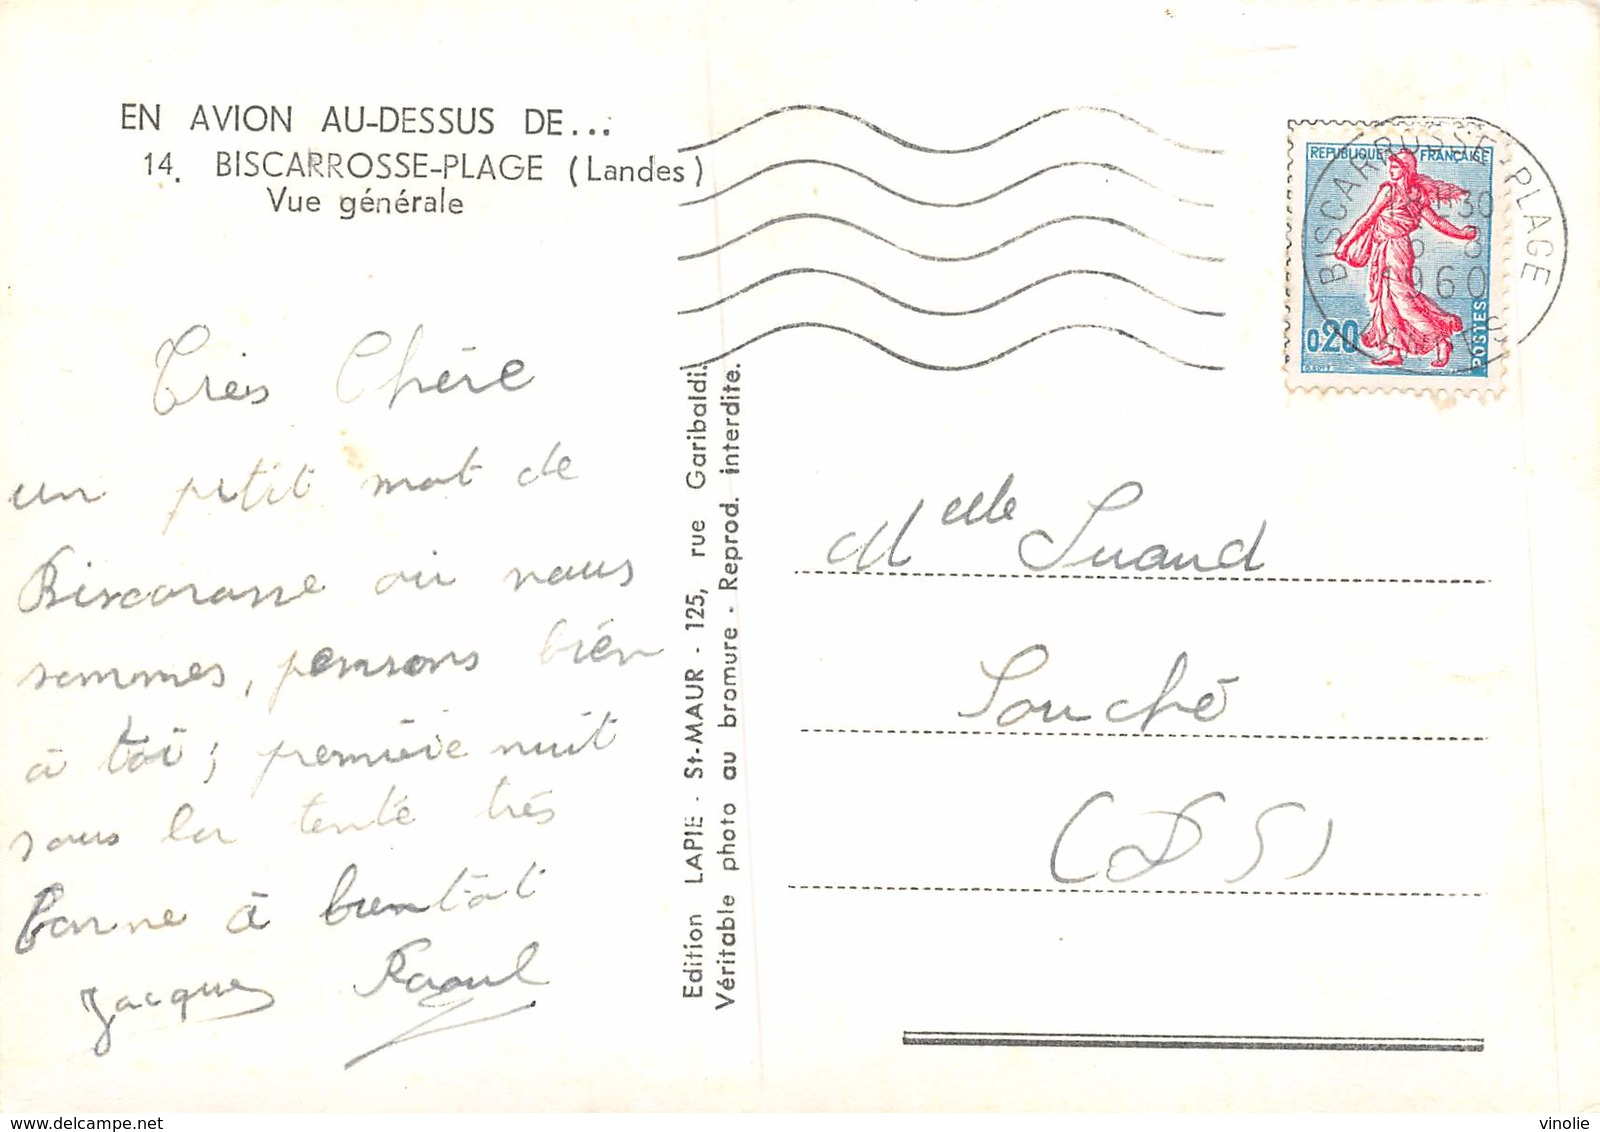 EN AVION AU-DESSUS DE...
14. BISCARROSSE-PLAGE (Landes)
Vue générale
Très Chère
un petit mot de
Biscarosse où nous
sommes, pensons bien
à toi; première nuit
sous la tente très
bonne à bientôt
Jacques Raoul
Edition LAPIE - St-MAUR - 125, rue Garibaldi.
Véritable photo au bromure - Reprod. interdite.
REPUBLIQUE FRANÇAISE
0,20
POSTES
BISCARROSSE-PLAGE
-30
6-8
1960
LANDES
Melle Suand
Souché
(DS)
vinolie